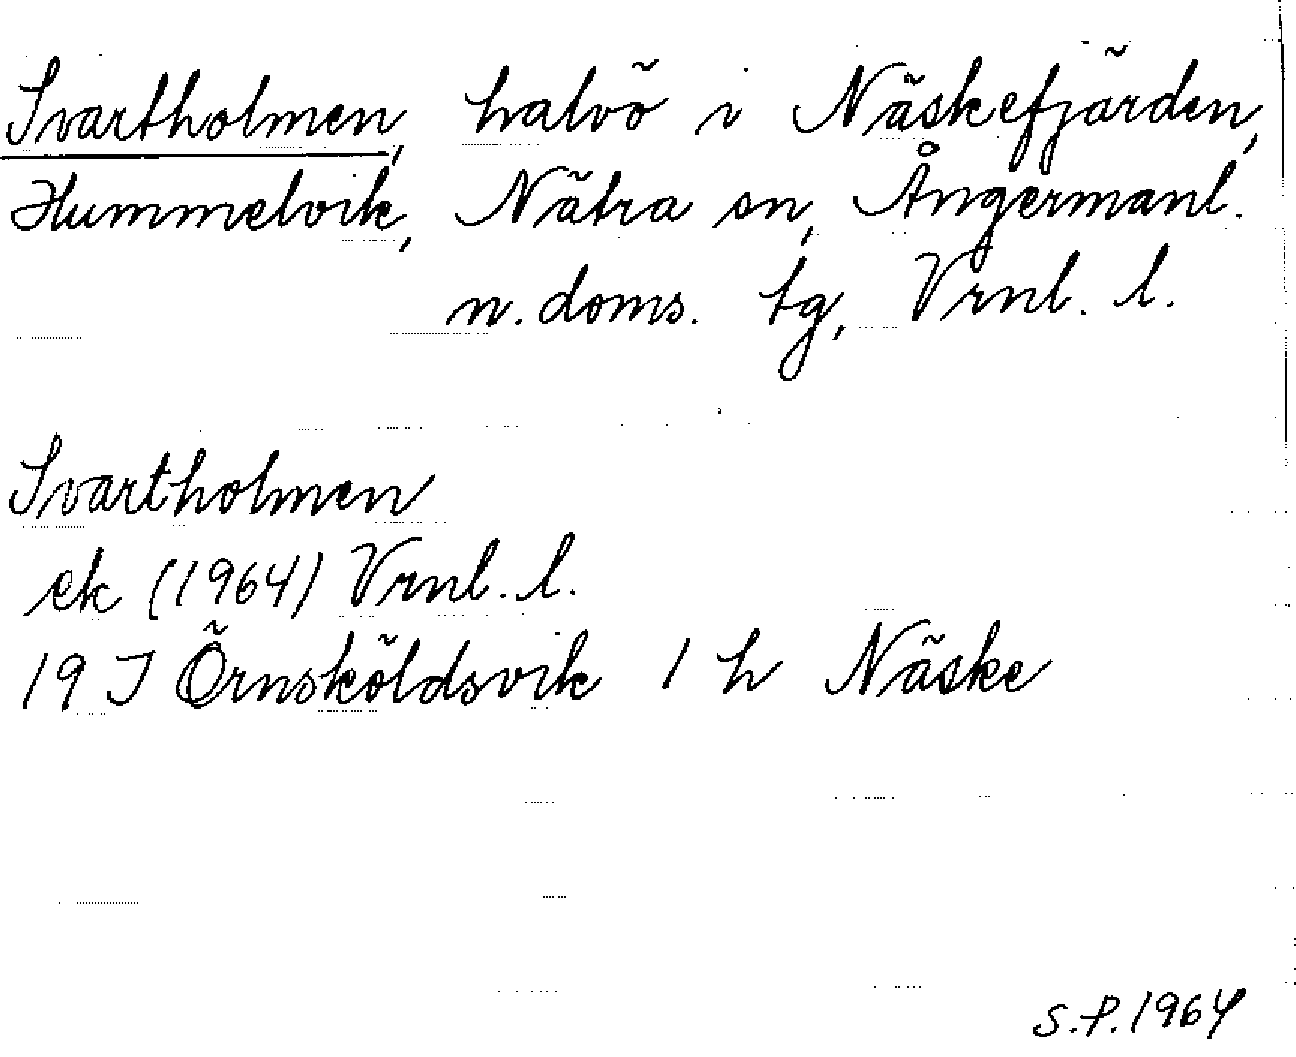 Svartholmen, halvö i Näskefjärden,
Hummelvik, Nätra sn, Ångermanl.
n. doms. tg, Vrnl. l.
Svartholmen
ek (1964) Vrnl. l.
19 J Örnsköldsvik 1 h Näske
S.P. 1964